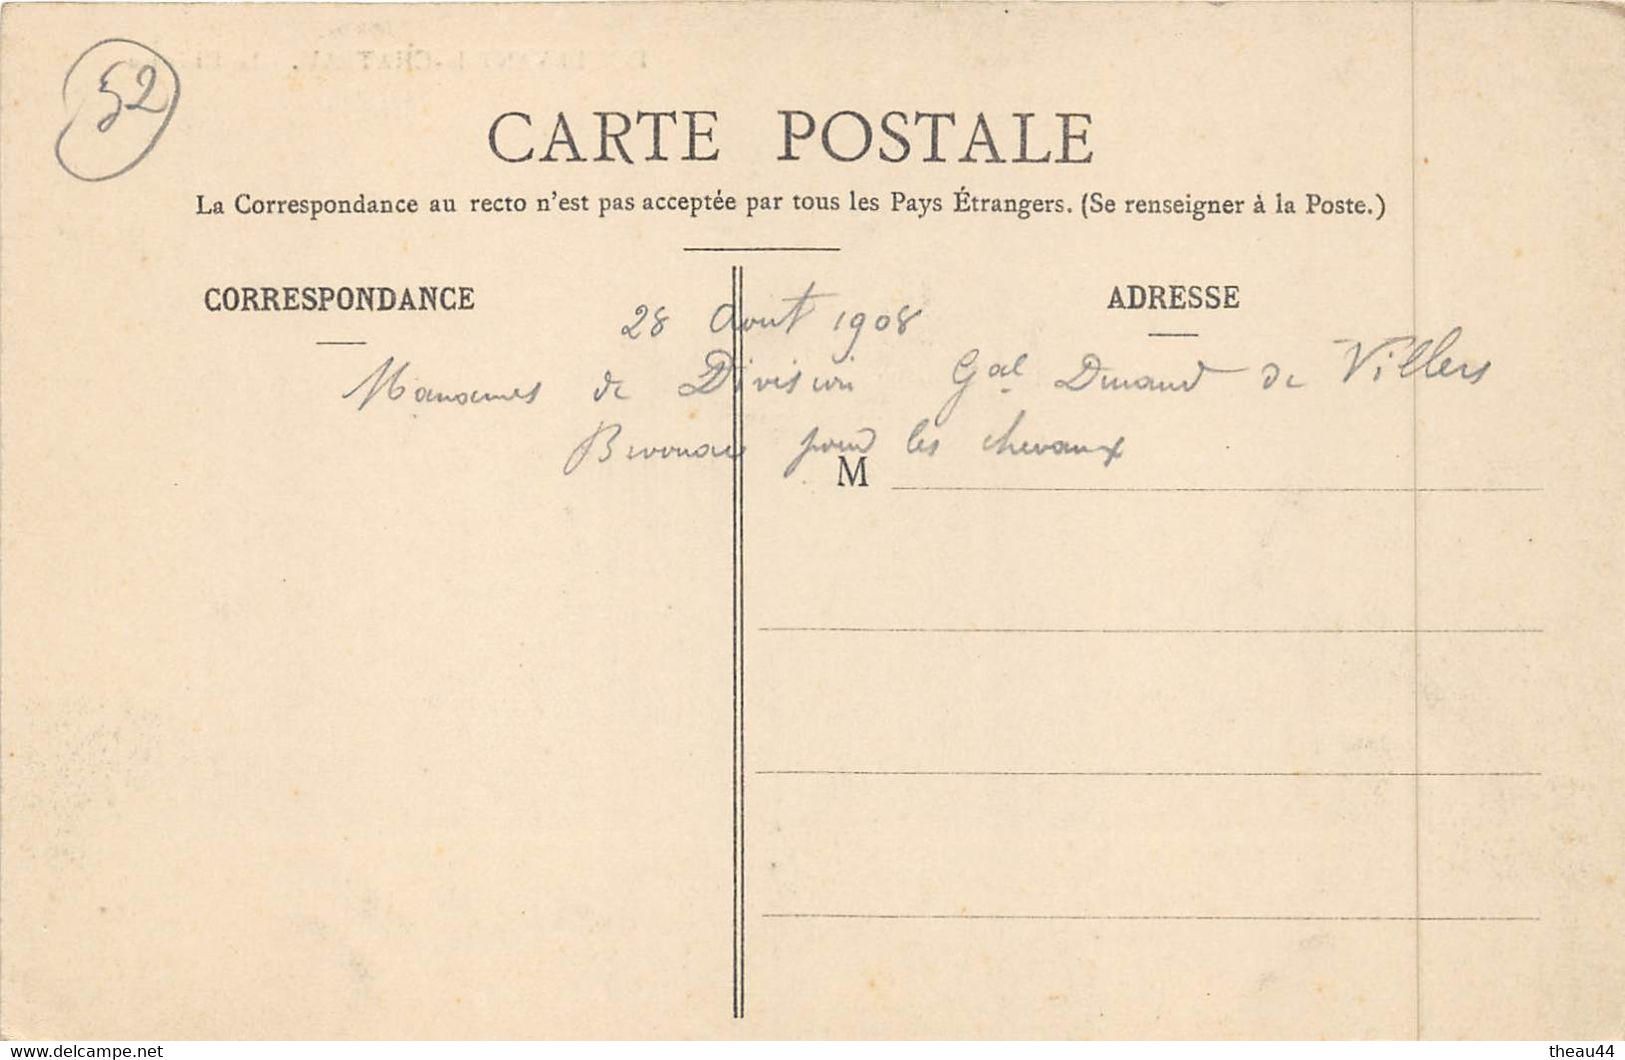 52
CARTE POSTALE
La Correspondance au recto n'est pas acceptée par tous les Pays Étrangers. (Se renseigner à la Poste.)
CORRESPONDANCE
ADRESSE
28 Aout 1908
de Division Gal de Villers
pour les chevaux
M
https://www.delcampe.net
theau44